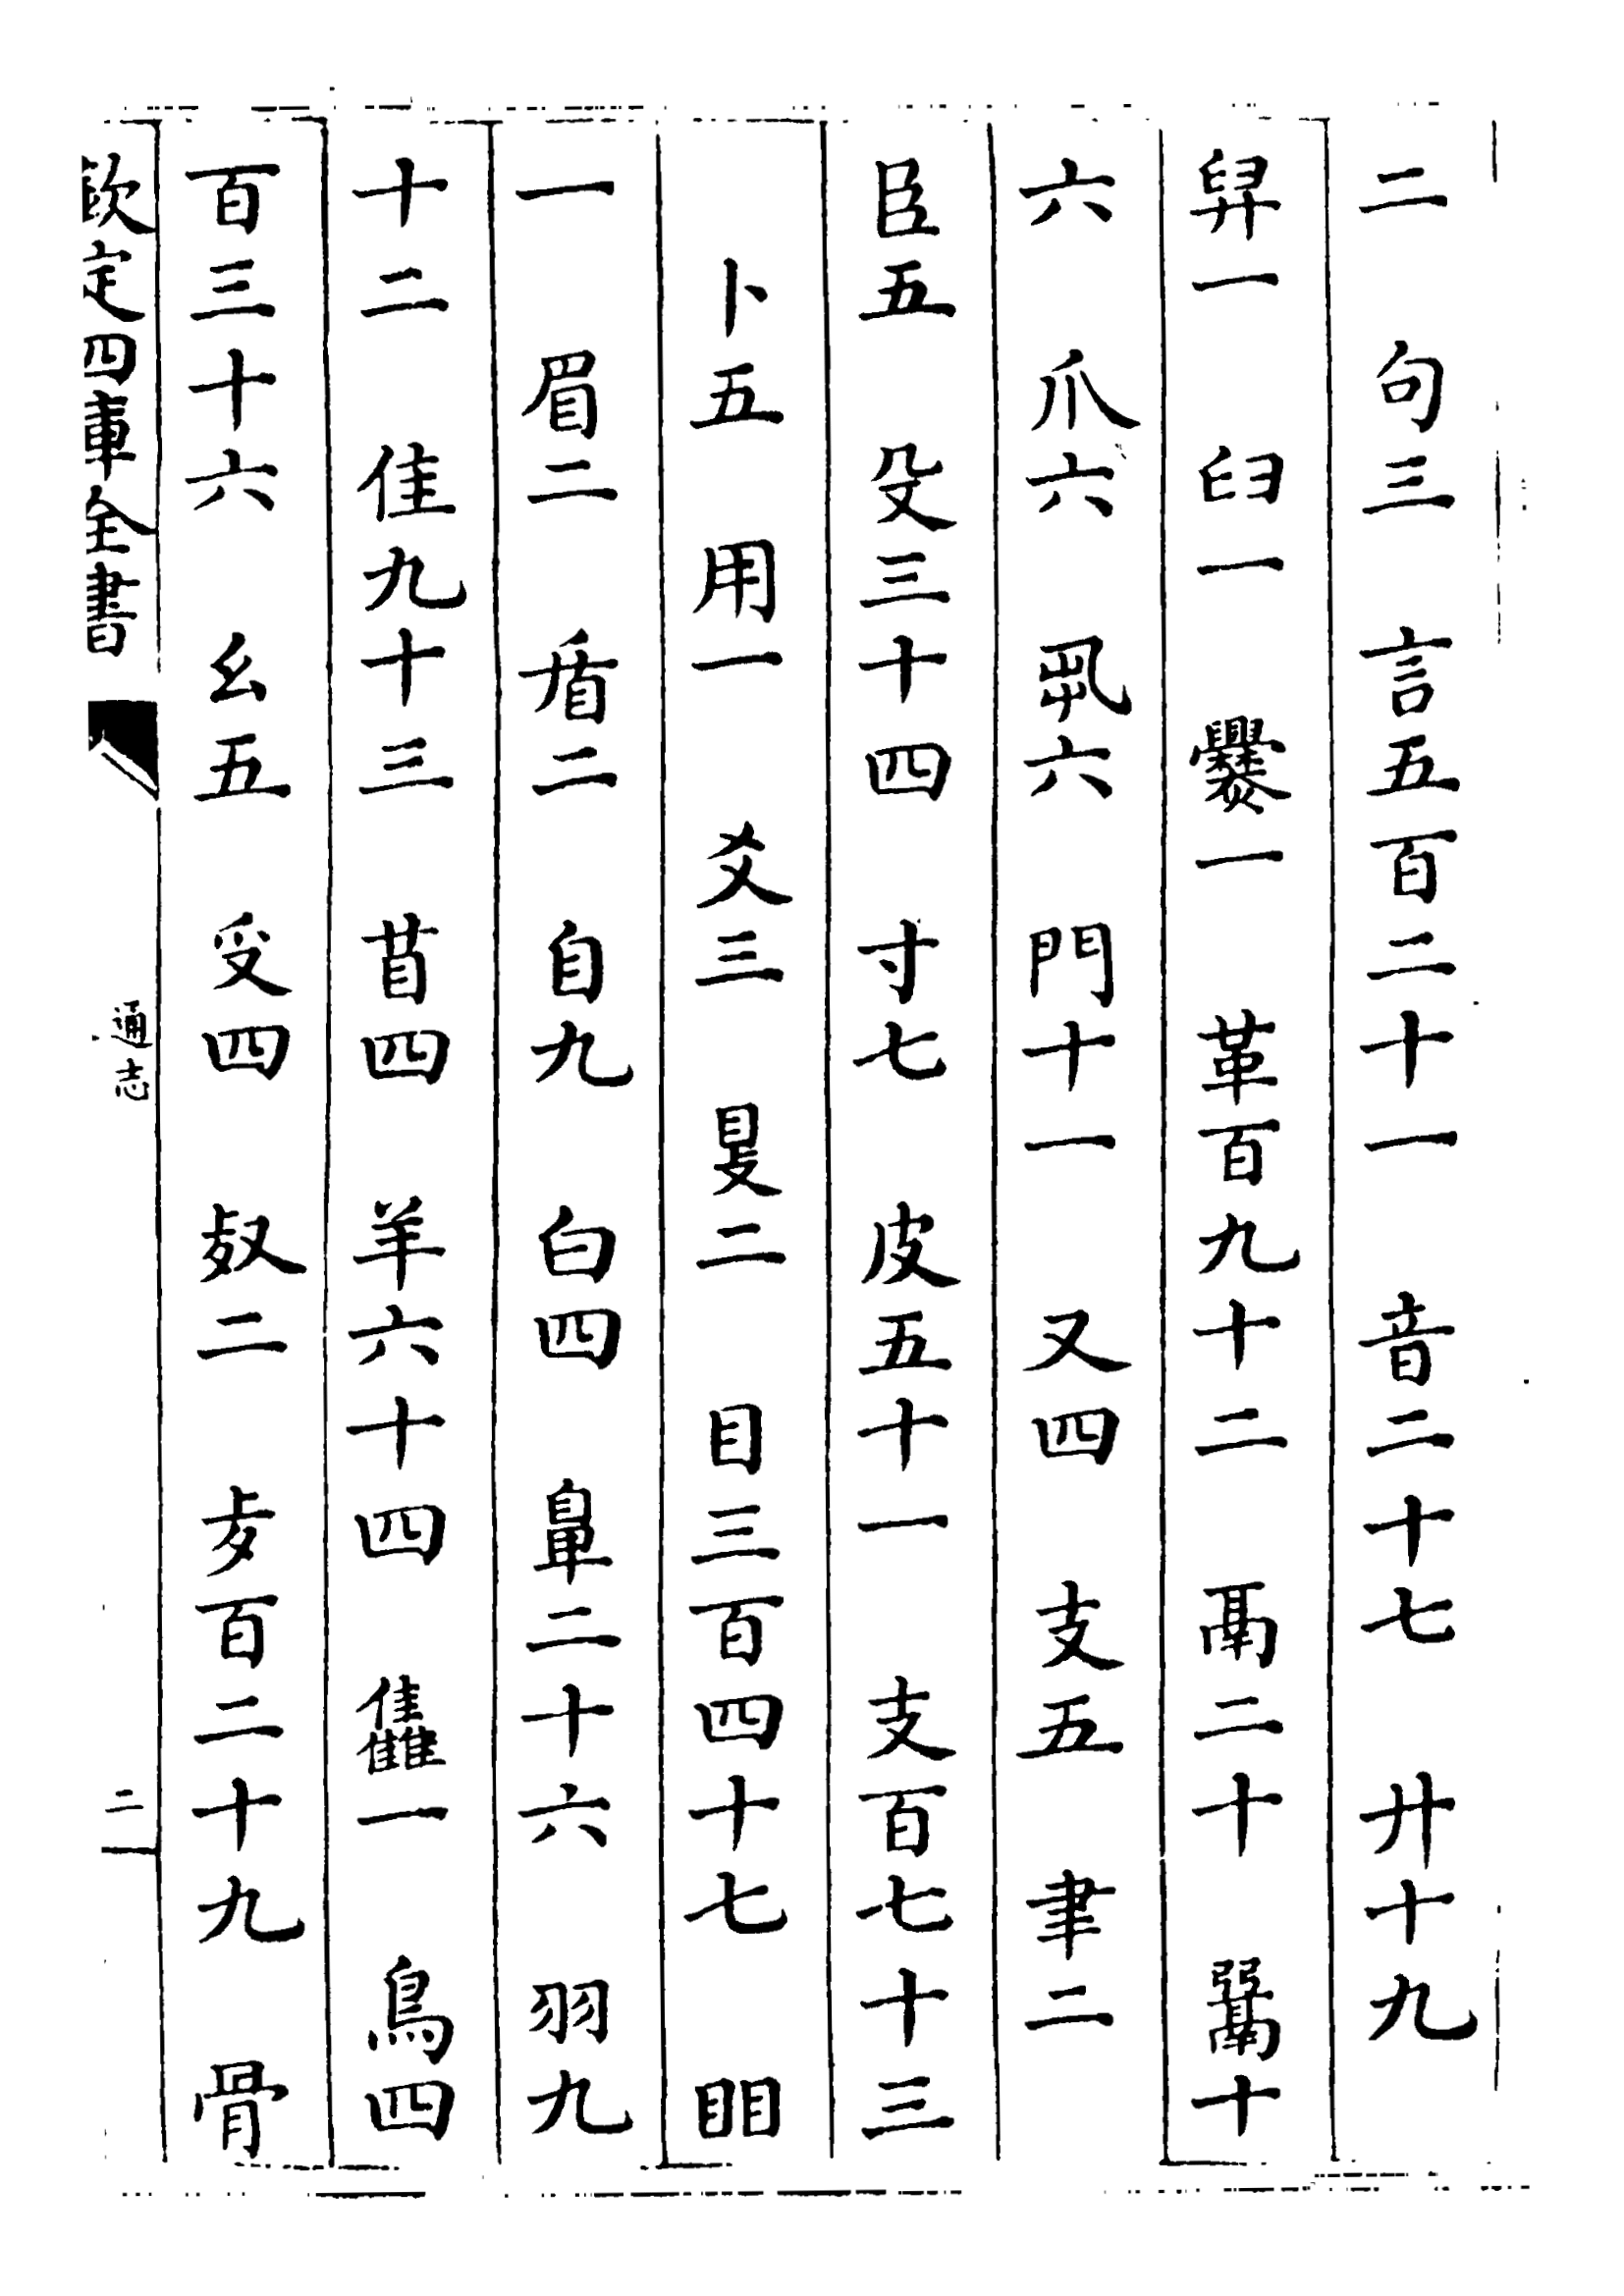 二　句三　言五百二十一　音二十七　廾十九
舁一　臼一　爨一　革百九十二　鬲二十　䰜十
六　爪六　丮六　鬥十一　又四　支五　聿二
臣五　殳三十四　寸七　皮五十一　支百七十三
卜五　用一　爻三　𥄎二　目三百四十七　䀠
一　眉二　盾二　自九　白四　鼻二十六　羽九
十二　隹九十三　苜四　羊六十四　雥一　鳥四
百三十六　幺五　𠬪四　𣦼二　歺百二十九　骨
欽定四庫全書　通志　二